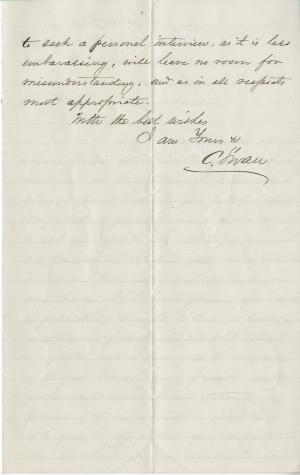 to seek a personal interview, as it is less
embarassing, will leave no room for
misunderstanding, and as in all respects
most appropriate.
With the best wishes
I am Yours &
C. Swan